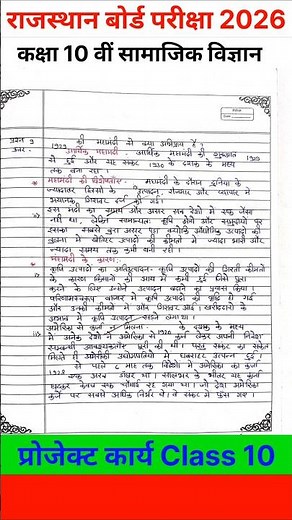 राजस्थान बोर्ड परीक्षा 2026
कक्षा 10 वीं सामाजिक विज्ञान
प्रश्न 2 1929 की महामंदी से क्या अभिप्राय है?
उत्तर- आर्थिक महामंदी :- आर्थिक महामंदी की शुरुआत 1929
से हुई और यह संकट 1930 के दशक के मध्य
तक बना रहा।
महामंदी की विशेषताएँ:- महामंदी के दौरान दुनिया के
ज्यादातर हिस्सों के उत्पादन, रोजगार और व्यापार में
भयानक गिरावट दर्ज की गई।
इस मंदी का प्रभाव और असर सब देशों में एक जैसा
नहीं था, लेकिन सामान्यतः कृषि क्षेत्रों और समुदायों पर
इसका सबसे बुरा असर पड़ा क्योंकि औद्योगिक उत्पादों की
तुलना में खेतिहर उत्पादों की कीमतों में ज्यादा भारी और
ज्यादा समय तक कमी बनी रही।
महामंदी के कारण:-
कृषि उत्पादों का अतिउत्पादन:- कृषि उत्पादों की गिरती कीमतों
के कारण किसानों की आय में कमी हुई जिसे पूरा
करने के लिए उन्होंने उत्पादन बढ़ाने का प्रयास किया।
परिणामस्वरूप बाजार में कृषि उत्पादों की वृद्धि हो गई
और उनकी कीमतों में और गिरावट आई। खरीददारों के
अभाव में कृषि उत्पादन सड़ने लगा था।
अमेरिका से कर्जा न मिलना:- 1920 के दशक के मध्य
में अनेक देशों ने अमेरिका से कर्ज लेकर अपनी निवेश
सम्बन्धी आवश्यकताएँ पूरी की थी। परंतु संकट का संकेत
मिलते ही अमेरिकी उद्योगपतियों में घबराहट उत्पन्न हुई।
1928 से पहले 6 माह तक विदेशों में अमेरिका का कर्जा
एक अरब डॉलर था। सालभर के भीतर यह कर्जा
घटकर केवल एक चौथाई रह गया था। जो देश अमेरिकी
कर्जे पर सबसे अधिक निर्भर थे। वे संकट में फंस गए।
प्रोजेक्ट कार्य Class 10